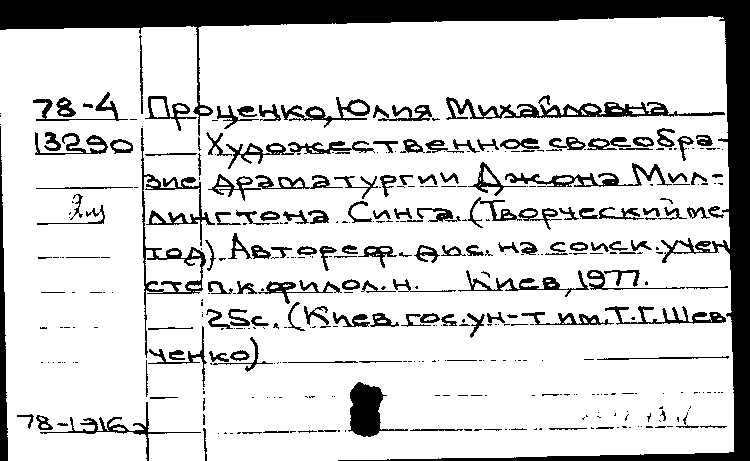 78-4 Проценко, Юлия Михайловна.
13290 Художественное своеобра-
зие драматургии Джона Мил-
лингтона Синга. (Творческий ме-
тод). Автореф. дис. на соиск. учен
степ. к. филол. н. Киев, 1977.
25с. (Киев. гос. ун-т им. Т.Г. Шев-
ченко)
78-1916а